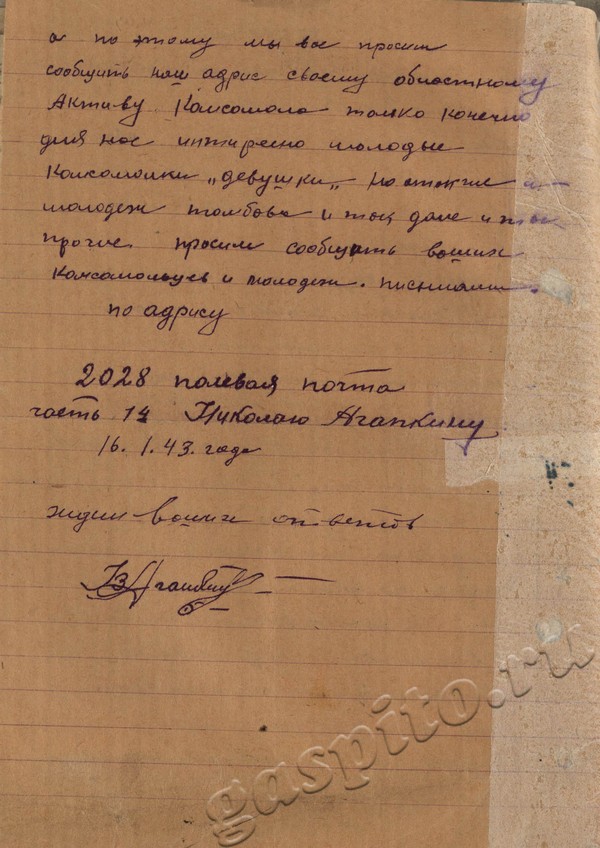 а по этому мы вас просим
сообщить наш адрис своему областному
Активу Комсомола только конечно
для нас интиресно молодые
Комсомолки „девушки„
молодеж тамбова и так дале и так
прочие. просим сообщить ваших
Комсамольцев и молодеж. письмами.
по адрису
2028 полевая почта
часть 14 Николаю Агапкину
16.1.43. года
ждем ваших ответов
gaspito.ru